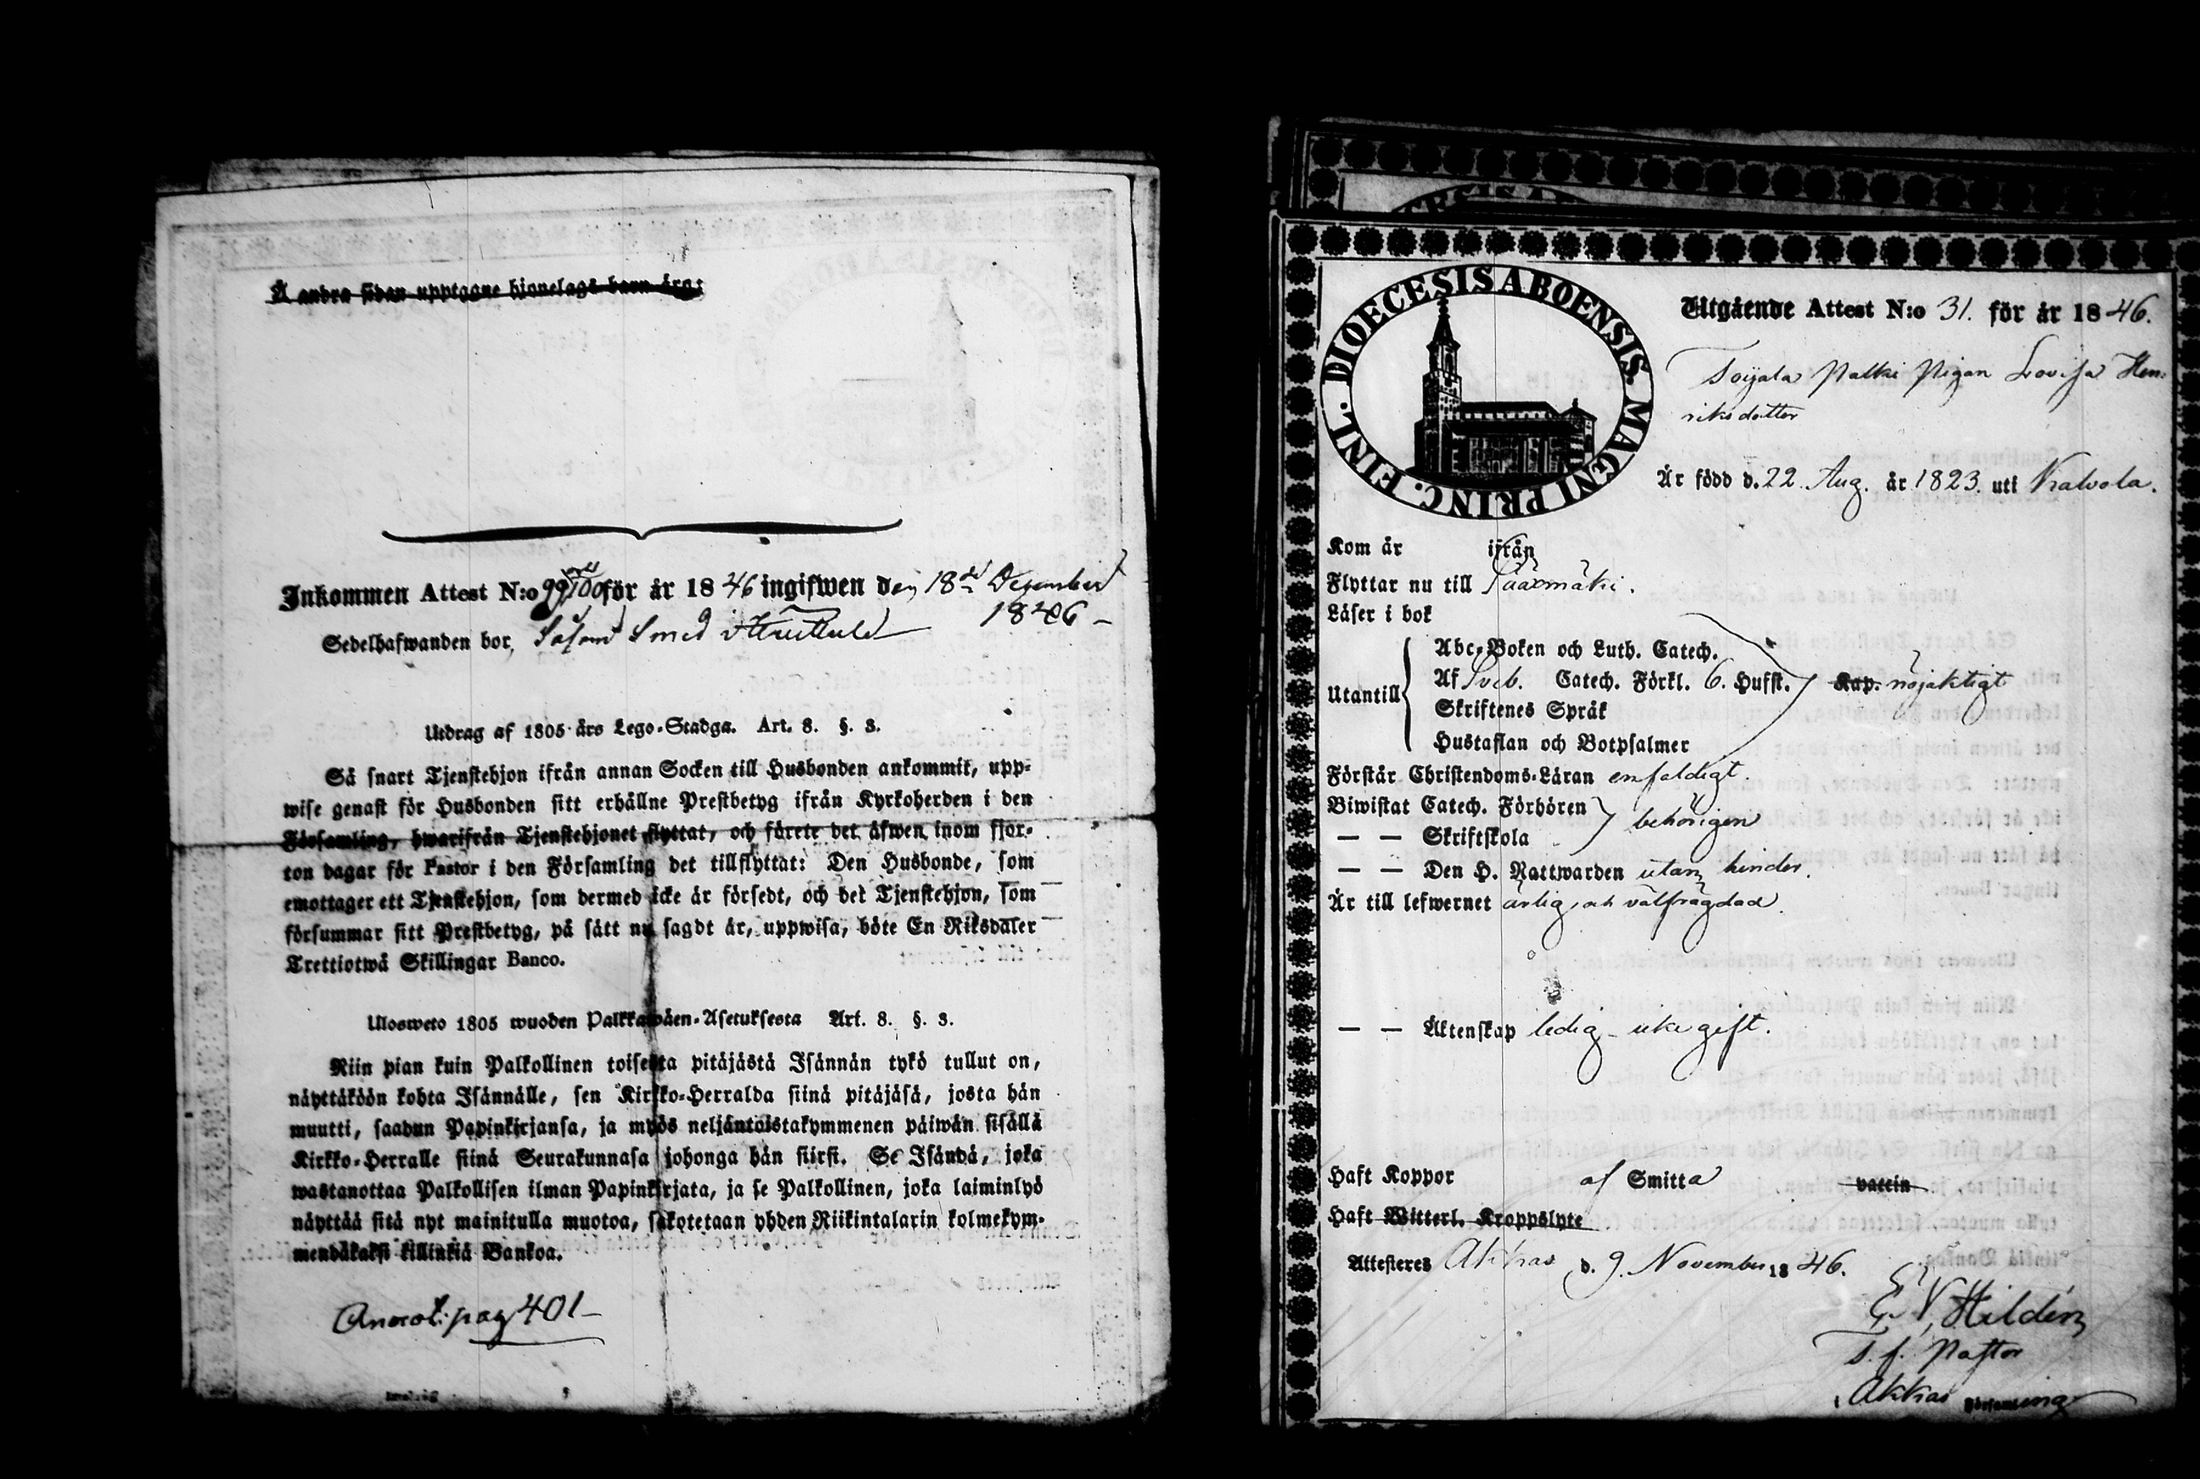 Å andra sidan upptagne hjonelags barn äro:
Inkommen Attest N:o 99 för år 1846 ingifwen den 18de Dezember
1846
Sedelhafwanden bor,
Utdrag af 1805 års Lego-Stadga. Art. 8. §. 3.
Så snart Tjenstehjon ifrån annan Socken till Husbonden ankommit, upp-
wise genast för Husbonden sitt erhållne Prestbetyg ifrån Kyrkoherden i den
Församling, hwarifrån Tjenstehjonet flyttat, och förete det äfwen inom fjor-
ton dagar för Pastor i den Församling det tillflyttat: Den Husbonde, som
emottager ett Tjenstehjon, som dermed icke är försedt, och det Tjenstehjon, som
försummar sitt Prestbetyg, på sätt nu sagdt är, uppwisa, böte En Riksdaler
Trettiotwå Skillingar Banco.
Ulosweto 1805 wuoden Palkkawäen-Asetuksesta Art. 8. §. 3.
Niin pian kuin Palkollinen toisesta pitäjästä Isännän tykö tullut on,
näyttäköön kohta Isännälle, sen Kirkko-Herralda siinä pitäjäsä, josta hän
muutti, saadun Papinkirjansa, ja myös neljäntoistakymmenen päiwän sisällä
Kirkko-Herralle siinä Seurakunnasa johonga hän siirsi. Se Isändä, joka
wastanottaa Palkollisen ilman Papinkirjata, ja se Palkollinen, joka laiminlyö
näyttää sitä nyt mainitulla muotoa, sakotetaan yhden Riikintalarin kolmekym-
mendäkaksi killinkiä Bankoa.
Annot: pag 401
DIOECESIS ABOENSIS. MAGNI PRINC. FINL.
Utgående Attest N:o 31. för år 1846.
Toijala Palki Pigan Lovisa Hen-
riksdotter
Är född d. 22 Aug. år 1823. uti Kalvola.
Kom år ifrån
Flyttar nu till Sääxmäki.
Läser i bok
Abc-Boken och Luth. Catech.
Utantill Af Sveb. Catech. Förkl. 6. Hufst. Kap. nöjaktigt
Skriftenes Språk
Hustaflan och Botpsalmer
Förstår Christendoms-Läran enfaldigt.
Biwistat Catech. Förhören behörigen
— — Skriftskola
— — Den H. Nattwarden utan hinder.
Är till lefwernet ärlig och välfrägdad
— — Äktenskap ledig - icke gift.
Haft Koppor af Smitta vaccin
Haft Witterl. Kroppslyte
Attesteres Akkas d. 9. November 1846.
E. V. Hildén
T. f. Pastor
Akkas Församling